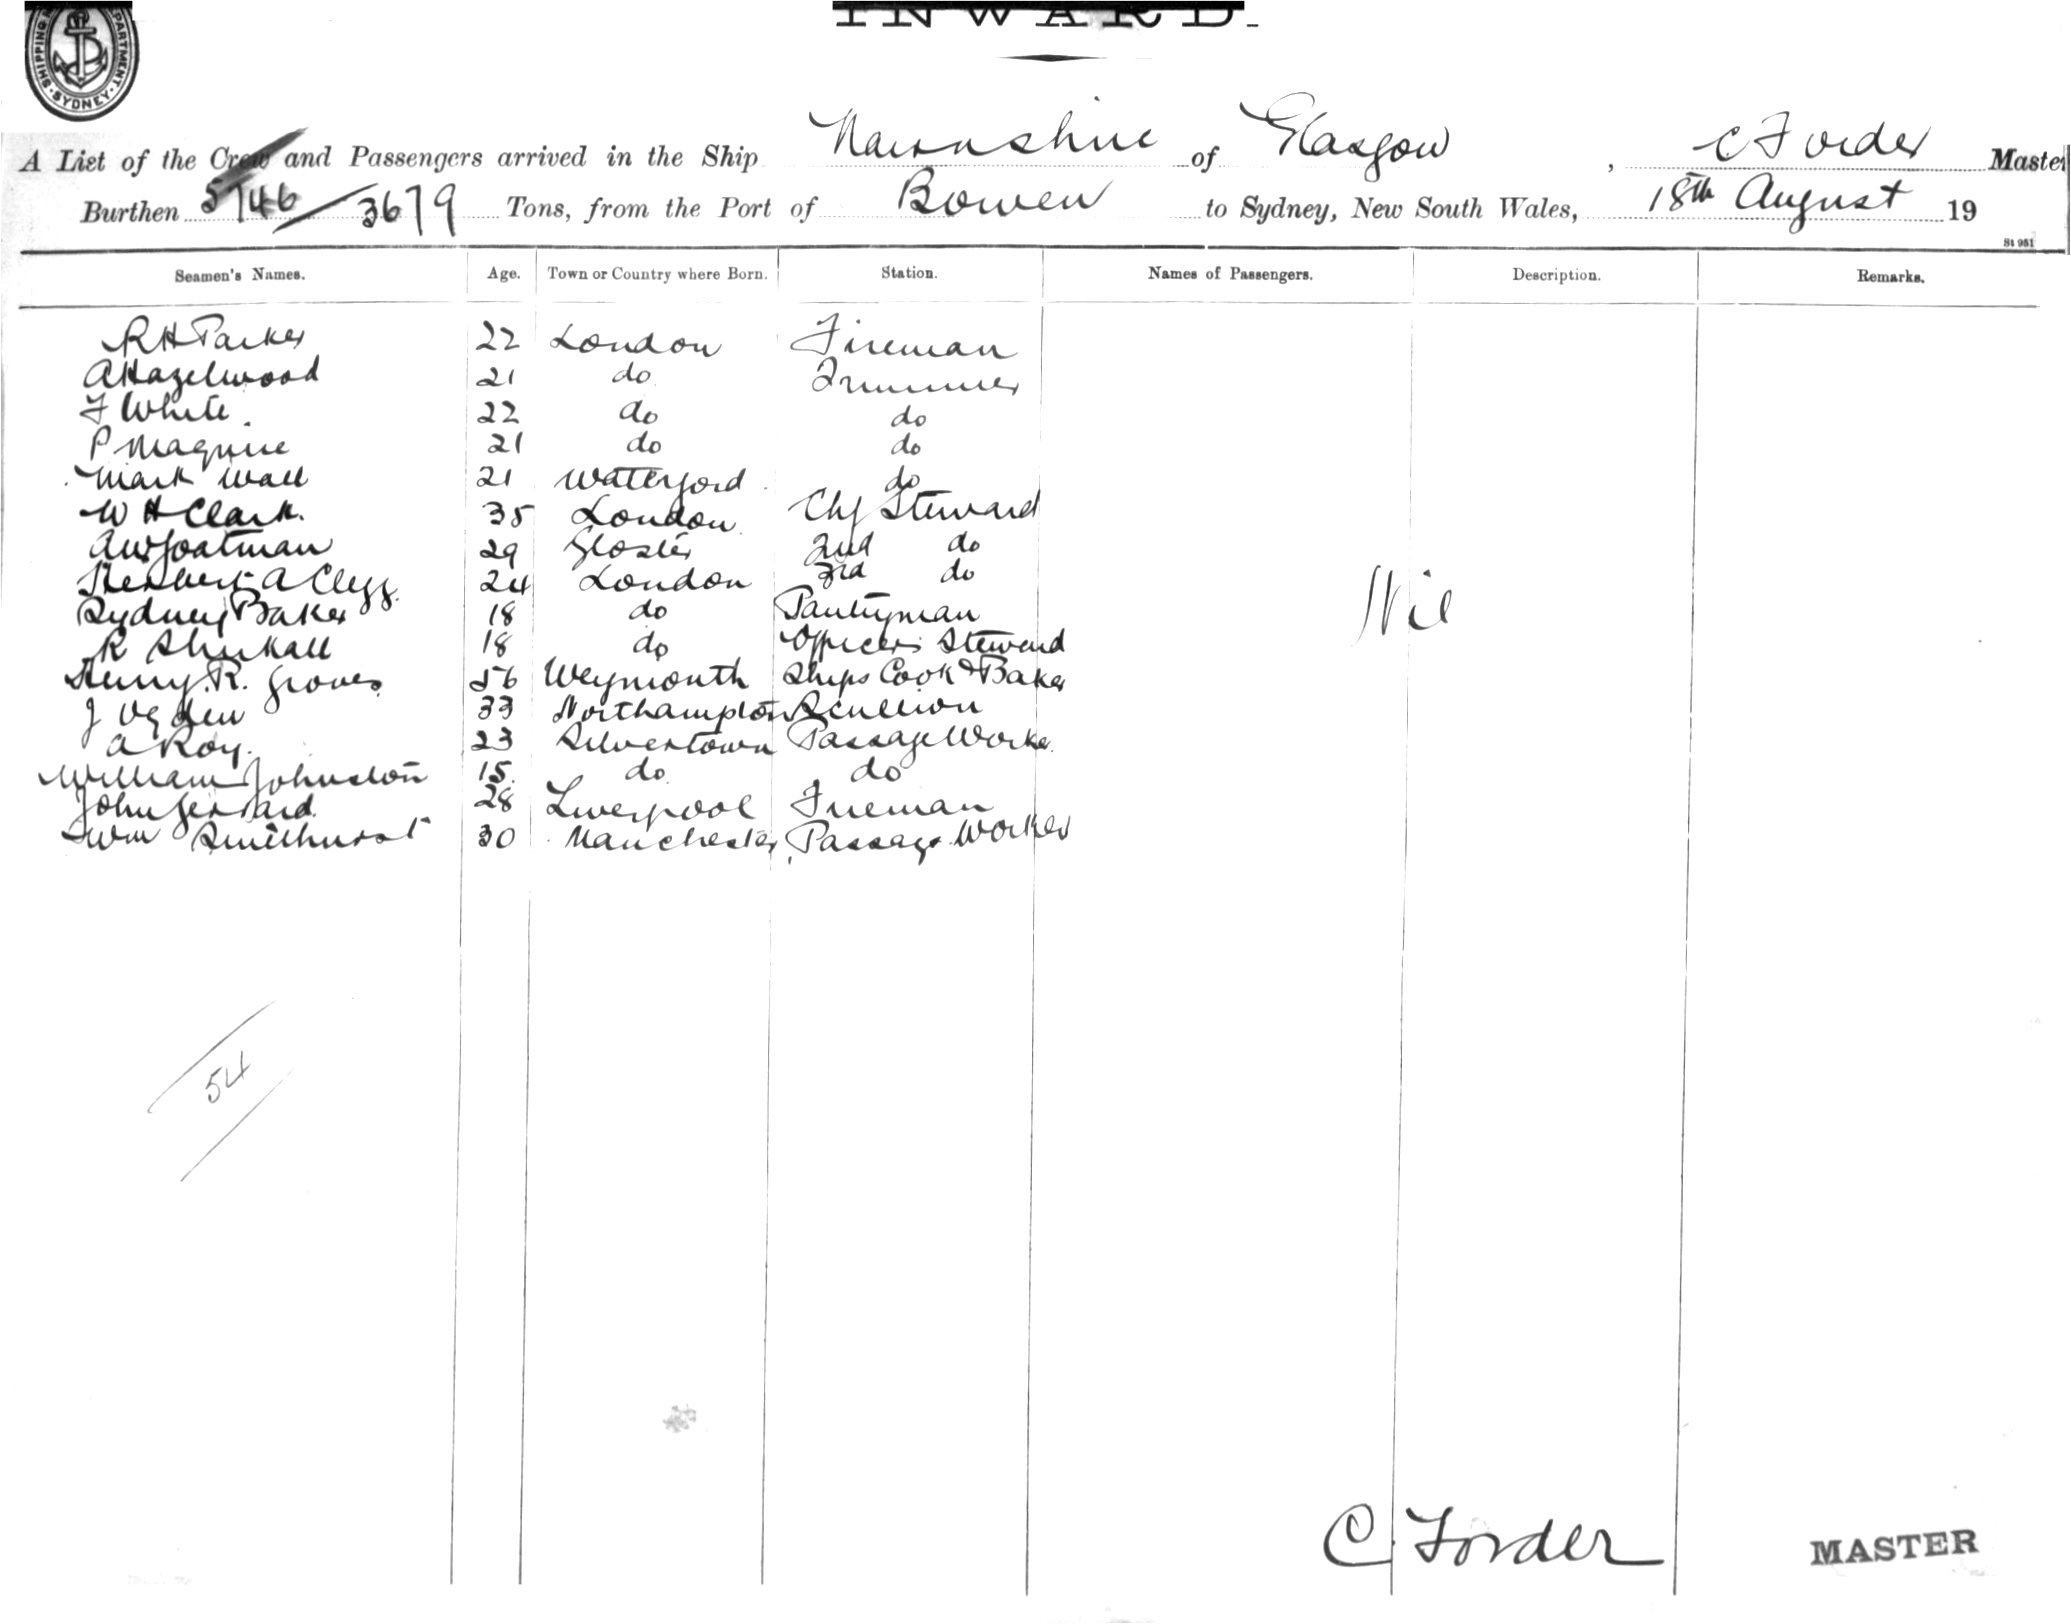 INWARD.
SHIPPING DEPARTMENT. SYDNEY.
A List of the Crew and Passengers arrived in the Ship Nairnshire of Glasgow, C Forder Master
Burthen 5746/3679 Tons, from the Port of Bowen to Sydney, New South Wales, 18th August 19
St 951
Seamen's Names. Age. Town or Country where Born. Station. Names of Passengers. Description. Remarks.
R H Parker 22 London Fireman
A Hazelwood 21 do Trimmer
F White 22 do do
P Maguire 21 do do
Mark Wall 21 Waterford do
W H Clark. 35 London Chf Steward
A W Joatman 29 Gloster 2nd do
Herbert A Clegg. 24 London 3rd do
Nil
Sydney Baker 18 do Pantryman
R 18 do Officers Steward
Henry. R. Groves 56 Weymouth Ships Cook & Baker
J Ogden 33 Northampton Scullion
A Roy. 23 Silvertown Passage Worker
William Johnston 15 do do
John Gerrard 28 Liverpool Fireman
Wm Smethurst 30 Manchester Passage Worker
54
C. Forder MASTER